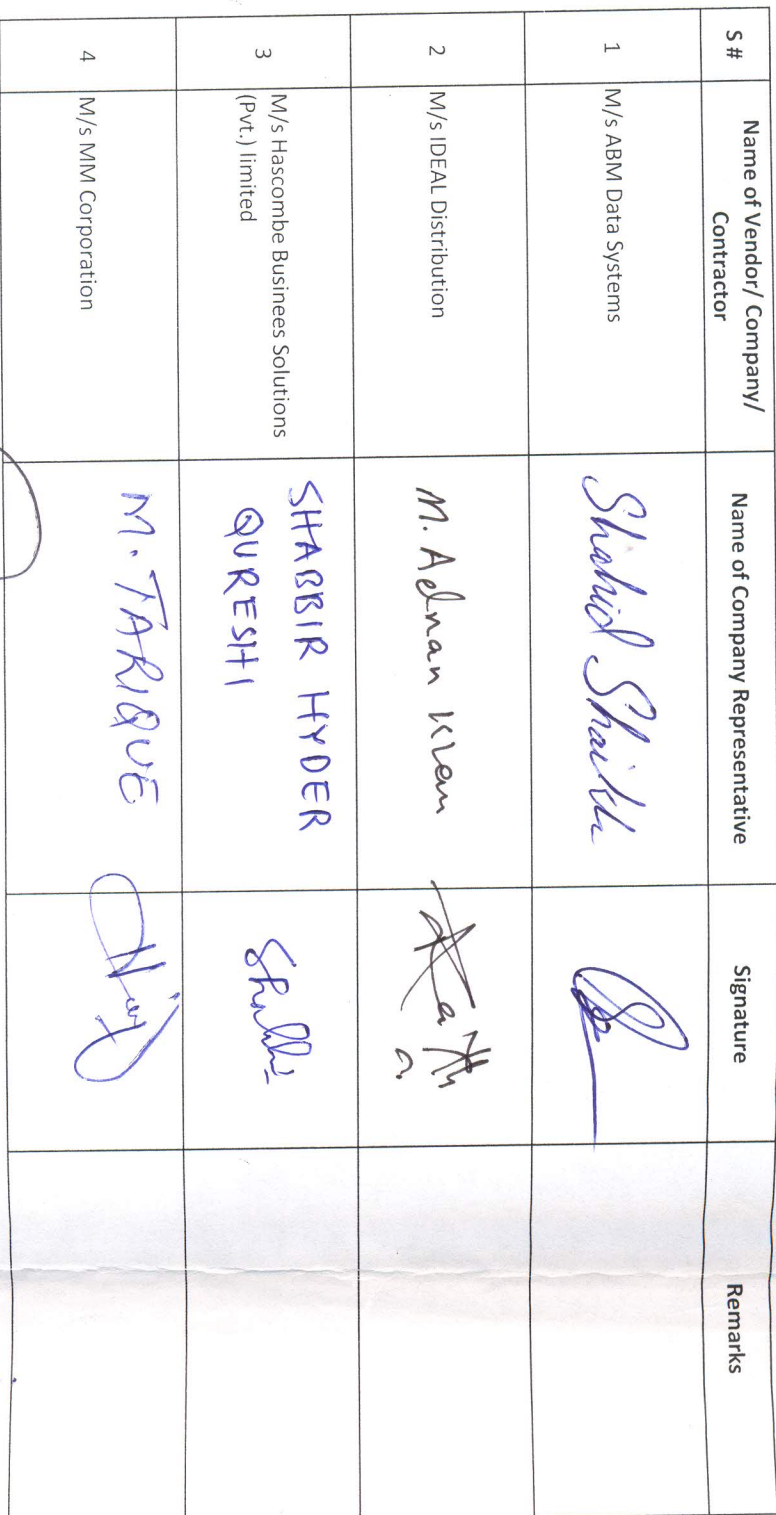 S #
Name of Vendor/ Company/
Contractor
Name of Company Representative
Signature
Remarks
1
M/s ABM Data Systems
Shahid Shaikh
2
M/s IDEAL Distribution
M. Adnan
3
M/s Hascombe Businees Solutions
(Pvt.) limited
SHABBIR HYDER
QURESHI
4
M/s MM Corporation
M. TARIQUE